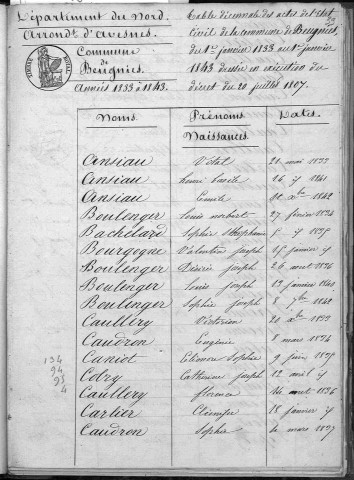 Département du Nord.
Arrond.t d'avesnes.
Commune
de
Beugnies.
Années 1833 à 1843.
Table décennale des actes de l'état
civil de la commune de Beugnies,
du 1er janvier 1833 au 1er janvier
1843 dressée en exécution du
décret du 20 juillet 1807.
Noms. Prénoms Dates.
Naissances.
Ansiau Vital 21 mai 1833
Ansiau 26 1841
Ansiau 1842
Boulenger Louis norbert 27 février 1834
Bachelard Sophie Stéphanie 5 1835
Bourgogne Valentin joseph 15 janvier
Boulenger Désiré joseph 24 août 1836
Boulenger Louis joseph 13 janvier 1840
Boulenger Sophie joseph 8 7bre 1842
Caullery Victorien 20 Xbre 1833
Caudron Eugénie 8 mars 1834
Caniot Eléonore Sophie 9 juin 1835
Colry Catherine joseph 12 avril
Caullery florence 14 août 1836
Carlier Clémence 18 janvier
Caudron Sophie mars 1837
134
94
95
4